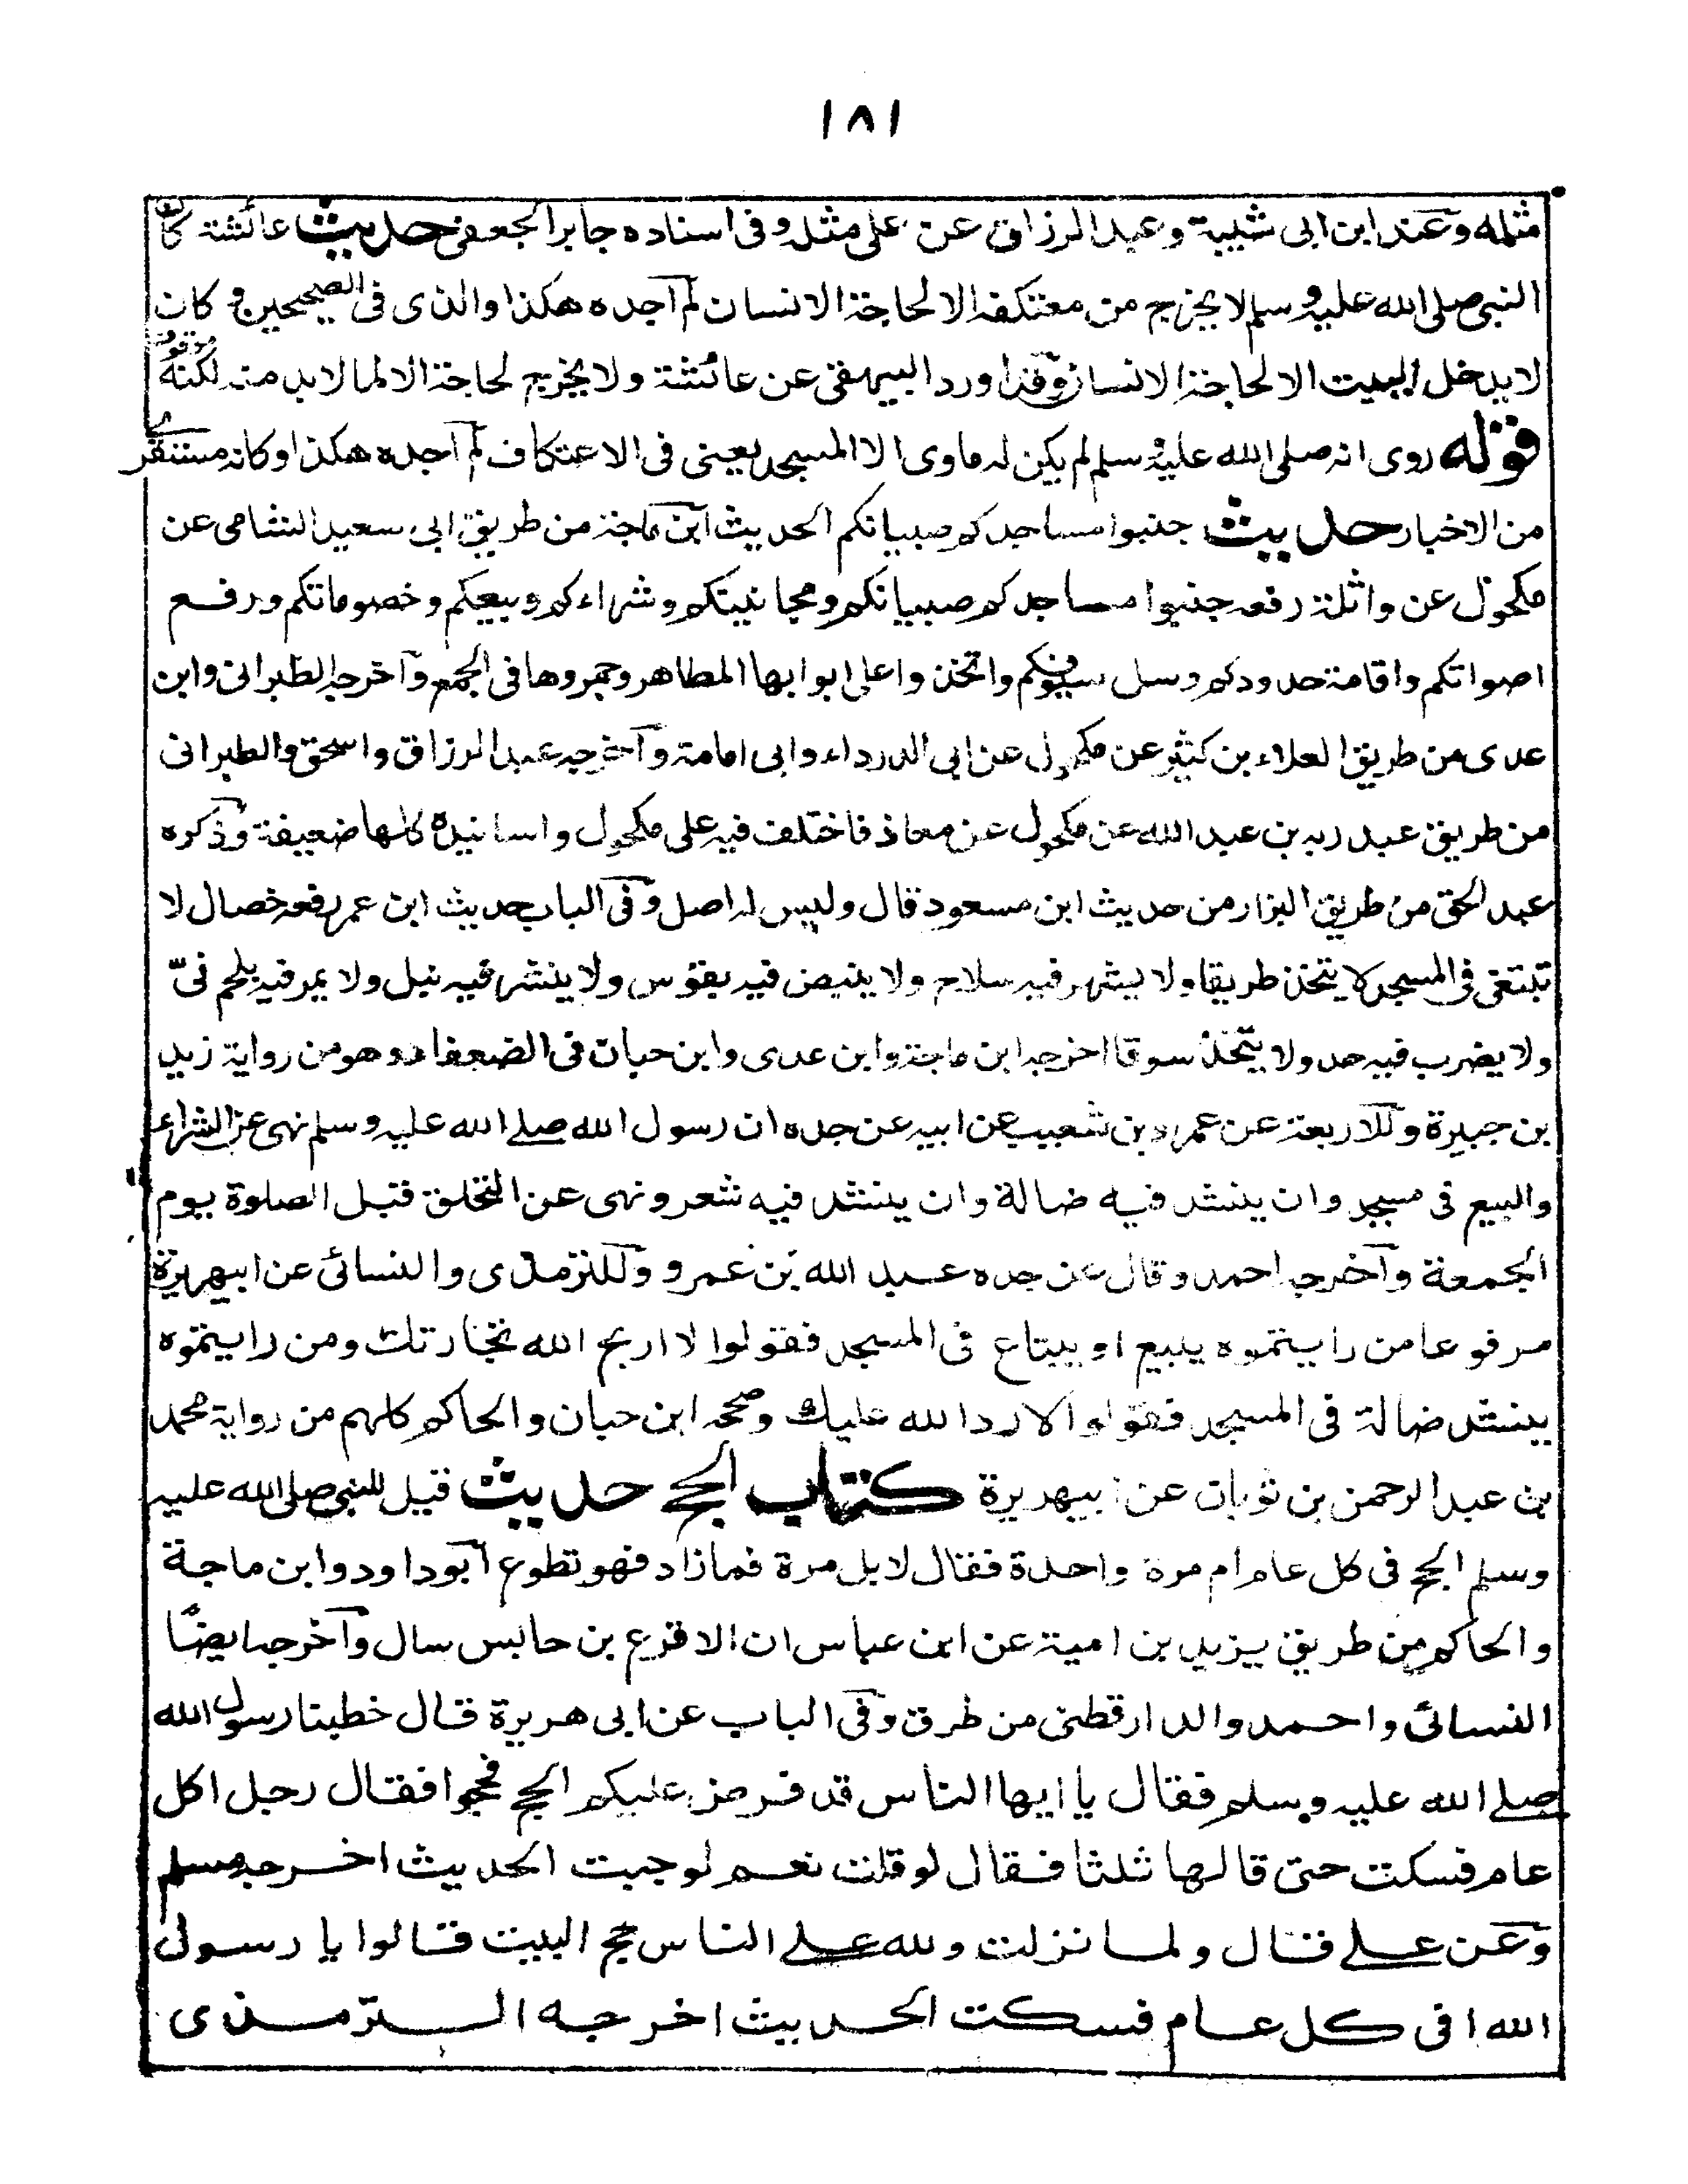 ١٨١
مثله وعند ابن ابى شيبة وعبد الرزاق عن على مثله وفى اسناده جابر الجعفى حديث عائشة كان
النبى صلى الله عليه وسلم لا يخرج من معتكفه الا لحاجة الانسان لم اجده هكذا والذى فى الصحيحين وكان
لا يدخل البيت الا لحاجة الانسان وقد اورد البيهقى عن عائشة ولا يخرج لحاجة الا لما لا بد منه لكنه موقوف
قوله روى انه صلى الله عليه وسلم لم يكن له ماوى الا المسجد يعنى فى الاعتكاف لم اجده هكذا وكانه مستقر
من الاخبار حديث جنبوا مساجدكم صبيانكم الحديث ابن ماجة من طريق ابى سعيد الشامى عن
مكحول عن واثلة رفعه جنبوا مساجدكم صبيانكم ومجانينكم وشراءكم وبيعكم وخصوماتكم ورفع
اصواتكم واقامة حدودكم وسل سيوفكم واتخذوا على ابوابها المطاهر وجمروها فى الجمع واخرجه الطبرانى وابن
عدى من طريق العلاء بن كثير عن مكحول عن ابى الدرداء وابى امامة واخرجه عبد الرزاق واسحق والطبرانى
من طريق عبد ربه بن عبد الله عن مكحول عن معاذ فاختلف فيه على مكحول واسانيده كلها ضعيفة وذكره
عبد الحق من طريق البزار من حديث ابن مسعود قال وليس له اصل وفى الباب حديث ابن عمر رفعه خصال لا
تبتغى فى المسجد لا يتخذ طريقا ولا يشهر فيه سلاح ولا ينبض فيه بقوس ولا ينشر فيه نبل ولا يمر فيه بلحم نىّ
ولا يضرب فيه حد ولا يتخذ سوقا اخرجه ابن ماجة وابن عدى وابن حبان فى الضعفاء وهو من رواية زيد
بن جبيرة وللاربعة عن عمرو بن شعيب عن ابيه عن جده ان رسول الله صلى الله عليه وسلم نهى عن الشراء
والبيع فى مسجد وان ينشد فيه ضالة وان ينشد فيه شعر ونهى عن التحلق قبل الصلوة يوم
الجمعة واخرجه احمد وقال عن جده عبد الله بن عمرو وللترمذى والنسائى عن ابيهريرة
مرفوعا من رايتموه يبيع او يبتاع فى المسجد فقولوا لا اربح الله تجارتك ومن رايتموه
ينشد ضالة فى المسجد فقولوا لا رد الله عليك وصححه ابن حبان والحاكم كلهم من رواية محمد
بن عبد الرحمن بن ثوبان عن ابيهريرة كتاب الحج حديث قيل للنبى صلى الله عليه
وسلم الحج فى كل عام ام مرة واحدة فقال لا بل مرة فما زاد فهو تطوع ابو داود وابن ماجة
والحاكم من طريق يزيد بن امية عن ابن عباس ان الاقرع بن حابس سال واخرجه ايضًا
النسائى واحمد والدارقطنى من طرق وفى الباب عن ابى هريرة قال خطبنا رسول الله
صلے الله عليه وسلم فقال يا ايها الناس قد فرض عليكم الحج فحجوا فقال رجل اكل
عام فسكت حتى قالها ثلثا فقال لو قلت نعم لوجبت الحديث اخرجه مسلم
وعن علے قال ولما نزلت ولله علے الناس حج البيت قالوا يا رسول
الله افى كل عام فسكت الحديث اخرجه الترمذى